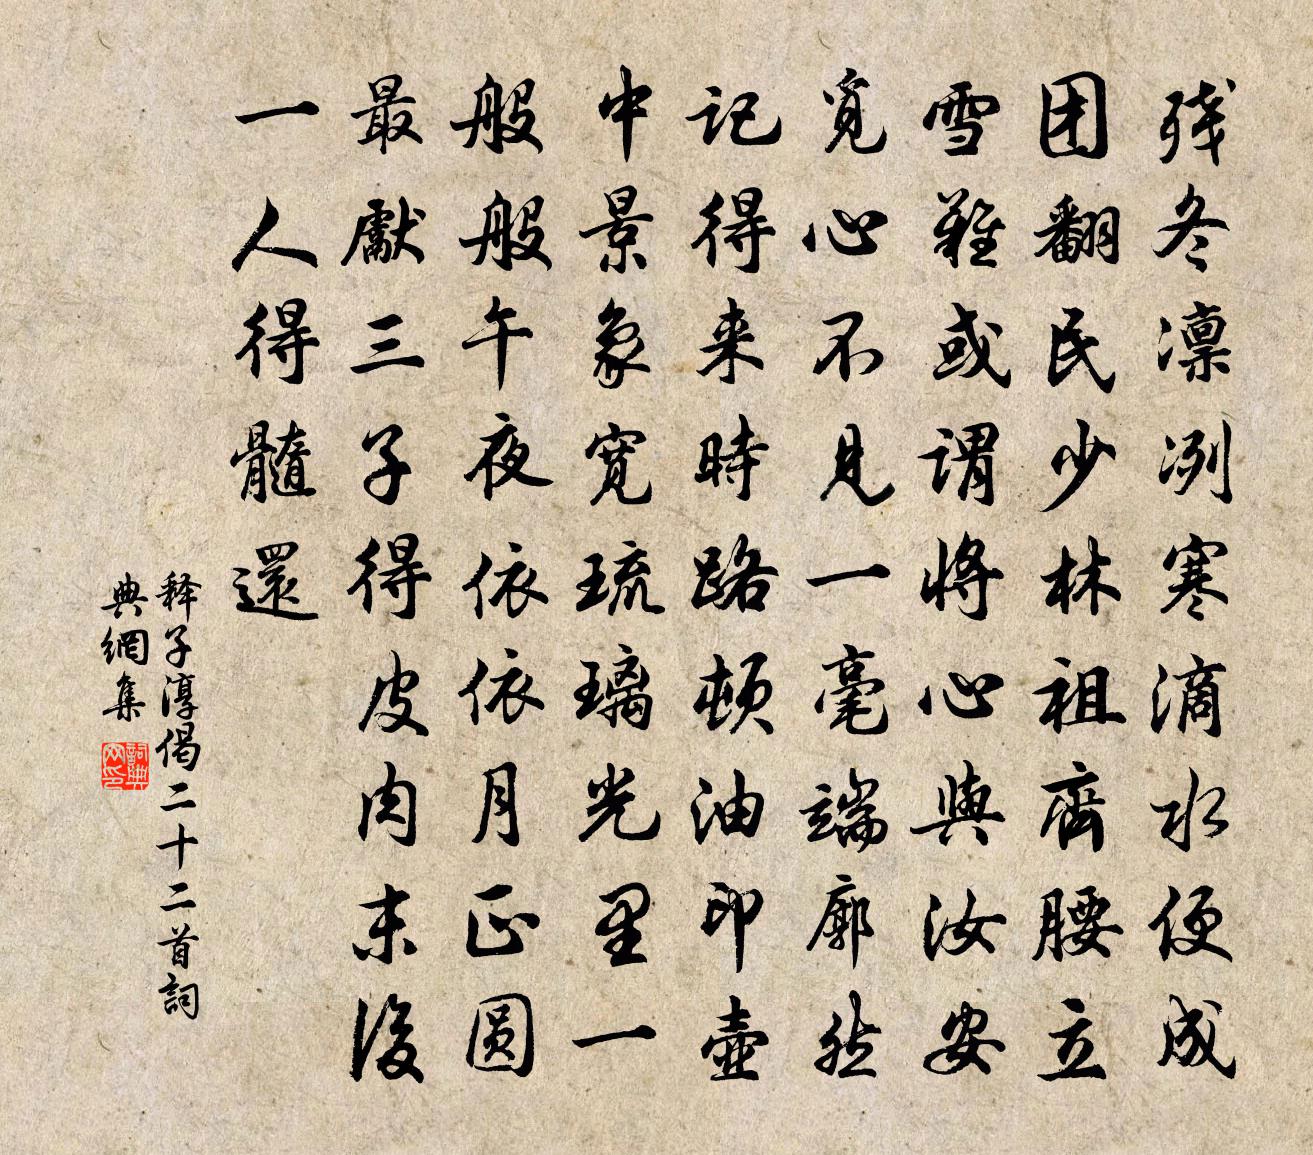 残冬凛冽寒滴水便成
团翻民少林祖齊腰立
雪難或谓將心與汝安
覓心不見一毫端廓然
记得来時路頓油印壺
中景象寬琉璃光里一
般般午夜依依月正圆
最獻三子得皮肉末後
一人得髓還
释子淳偈二十二首詞
典網集
詞典網印